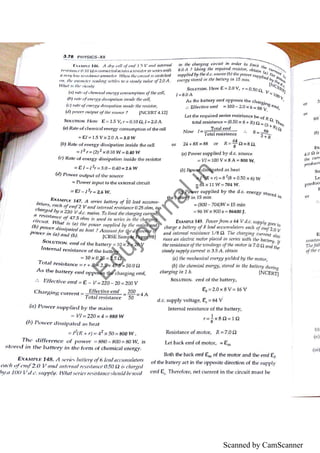 3.78 PHYSICS-XII
EXAMPLE 146. A dry cell of emf 1.5 V and internal
resistance 0.10 Ω is connected across a resistor in series with
a very low resistance ammeter. When the circuit is switched
on, the ammeter reading settles to a steady value of 2.0 A.
What is the steady
(a) rate of chemical energy consumption of the cell,
(b) rate of energy dissipation inside the cell,
(c) rate of energy dissipation inside the resistor,
(d) power output of the source ? [NCERT
SOLUTION. Here E = 1.5 V, r = 0.10 Ω, I = 2.0 A
(a) Rate of chemical energy consumption of the cell
= EI = 1.5 × 2.0 = 3.0 W
(b) Rate of energy dissipation inside the cell
= I² r = (2)² × 0.10 W = 0.40 W
(c) Rate of energy dissipation inside the resistor
= E I – I² r = 3.0 – 0.40 = 2.6 W
(d) Power output of the source
= Power input to the external circuit
= EI – I² r = 2.6 W.
EXAMPLE 147. A series battery of 10 lead accumu-
lators, each of emf 2 V and internal resistance 0.25 ohm, is
charged by a 220 V d.c. mains. To limit the charging current
a resistance of 47.5 ohm is used in series in the charging
circuit. What is (a) the power supplied by the mains and
(b) power dissipated as heat ? Account for the difference of
power in (a) and (b).
SOLUTION. emf of the battery = 10 × 2 = 20 V
Internal resistance of the battery
= 10 × 0.25 = 2.5 Ω
Total resistance = r + R = 2.5 + 47.5 = 50.0 Ω
As the battery emf opposes the charging emf,
∴ Effective emf = E – V = 220 – 20 = 200 V
Charging current = Effective emf / Total resistance = 200 / 50 = 4 A
(a) Power supplied by the mains
= VI = 220 × 4 = 880 W
(b) Power dissipated as heat
= I²(R + r) = 4² × 50 = 800 W.
The difference of power = 880 – 800 = 80 W, is
stored in the battery in the form of chemical energy.
EXAMPLE 148. A series battery of 6 lead accumulators
each of emf 2.0 V and internal resistance 0.50 Ω is charged
by a 100 V d.c. supply. What series resistance should be used
in the charging circuit in order to limit the current to
8.0 A ? Using the required resistor, obtain (a) the power
supplied by the d.c. source (b) the power dissipated as heat
energy stored in the battery in 15 min.
SOLUTION. Here E = 2.0 V, r = 0.50 Ω, V = 100 V,
I = 8.0 A
As the battery emf opposes the charging emf,
∴ Effective emf = 100 – 2.0 × 6 = 88 V
Let the required series resistance be of R Ω. Then
total resistance = (0.50 × 6 + R) Ω = (3 + R) Ω
Now I = Total emf / Total resistance
or 24 + 8R = 88 or R = 64/8 Ω = 8 Ω.
(a) Power supplied by d.c. source
= VI = 100 V × 8 A = 800 W,
(b) Power dissipated as heat
= 64 × 11 W = 704 W.
Power supplied by the d.c. energy stored in
the battery in 15 min
= (800 – 704) W × 15 min
= 96 W × 900 s = 86400 J.
EXAMPLE 149. Power from a 64 V d.c. supply goes to
charge a battery of 8 lead accumulators each of emf 2.0 V
and internal resistance 1/8 Ω. The charging current also
runs an electric motor placed in series with the battery. If
the resistance of the windings of the motor is 7.0 Ω and the
steady supply current is 3.5 A, obtain
(a) the mechanical energy yielded by the motor,
(b) the chemical energy, stored in the battery during
charging in 1 h. [NCERT]
SOLUTION. emf of the battery,
E_B = 2.0 × 8 V = 16 V
d.c. supply voltage, E_s = 64 V
Internal resistance of the battery,
r = 1/8 × 8 Ω = 1 Ω
Resistance of motor, R = 7.0 Ω
Let back emf of motor, = E_m
Both the back emf E_m of the motor and the emf E_B
of the battery act in the opposite direction of the supply
emf E_s. Therefore, net current in the circuit must be
Scanned by CamScanner